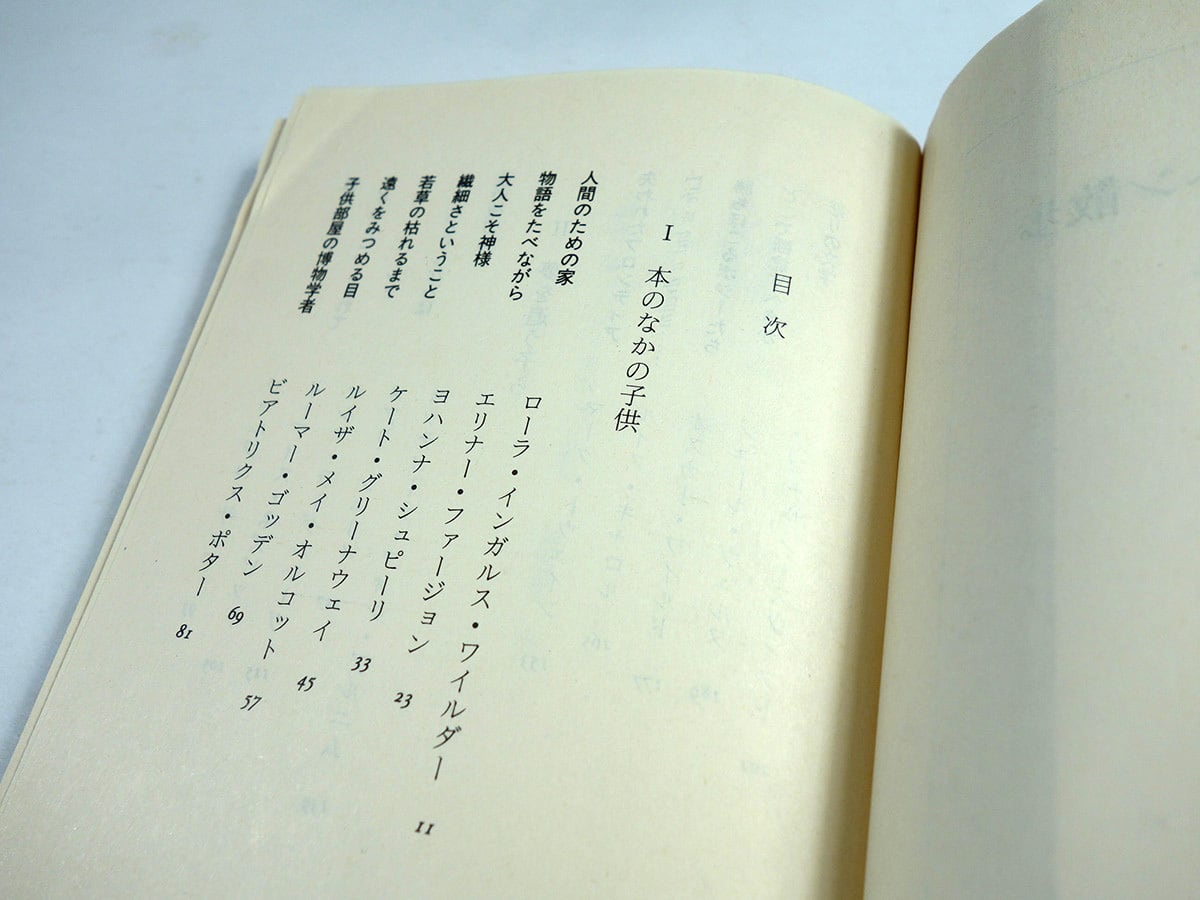 目次
I 本のなかの子供
人間のための家 ローラ・インガルス・ワイルダー 11
物語をたべながら エリナー・ファージョン 23
大人こそ神様 ヨハンナ・シュピーリ 33
繊細さということ ケート・グリーナウェイ 45
若草の枯れるまで ルイザ・メイ・オルコット 57
遠くをみつめる目 ルーマー・ゴッデン 69
子供部屋の博物学者 ビアトリクス・ポター 81